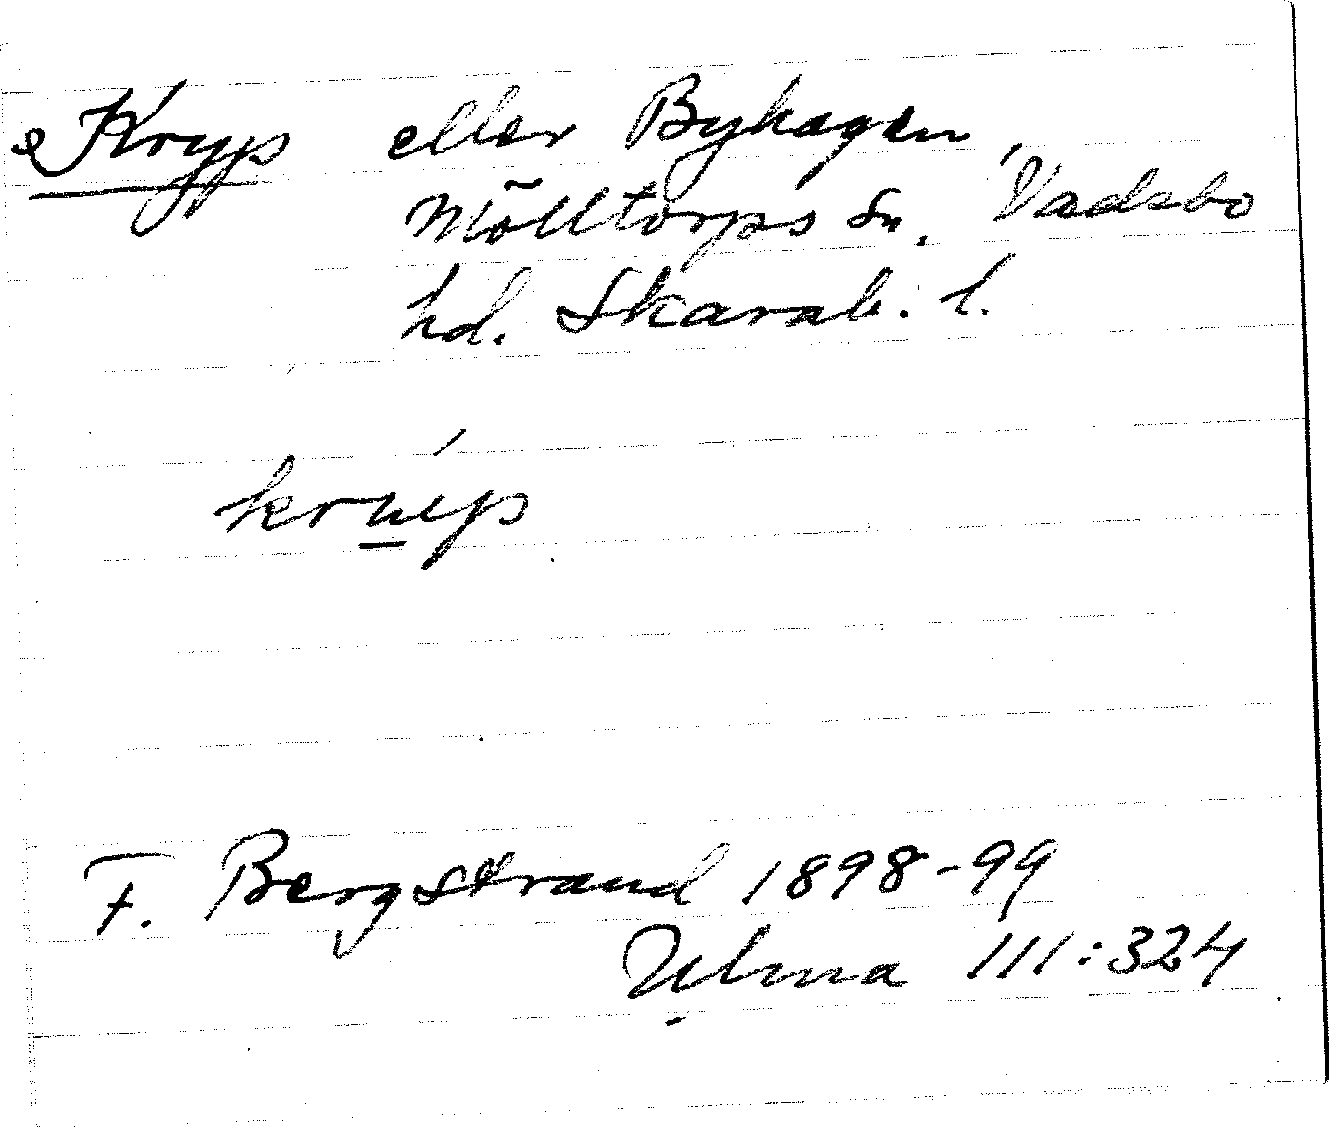 Kryp eller Byhagen,
Mölltorps Sn, Vadsbo
hd. Skarab. l.
F. Bergstrand 1898-99
Ulma 111:324